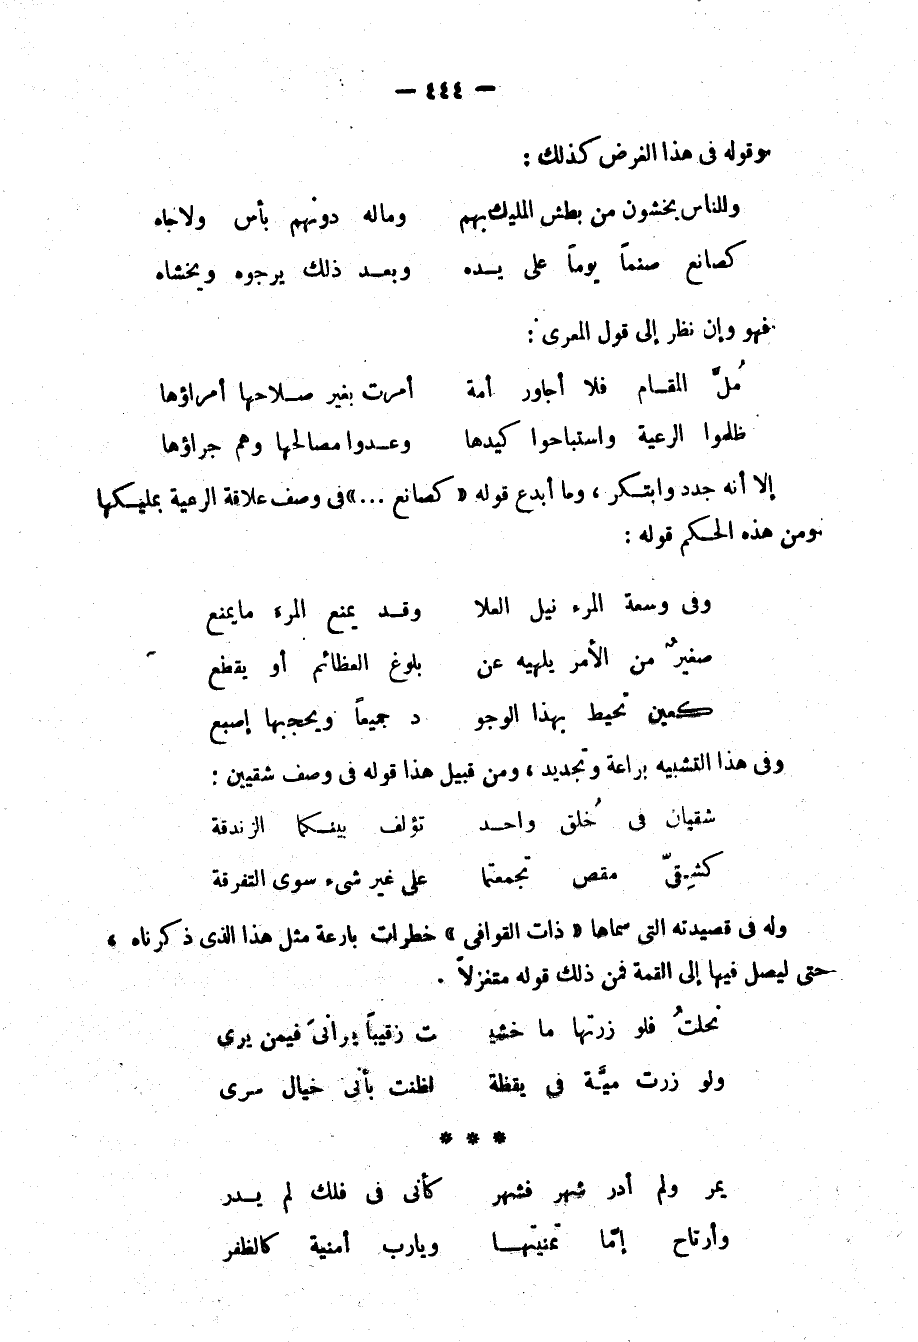 — ٤٤٤ —
وقوله فى هذا الغرض كذلك :
وللناس يخشون من بطش المليك بهم وماله دونهم بأس ولاجاه
كصانع صنماً يوماً على يــده وبعـد ذلك يرجوه ويخشاه
فهو وإن نظر إلى قول المعرى :
مُلَّ المقـام فلا أجاور أمة أمرت بغير صـلاحها أمراؤها
ظلموا الرعية واستباحوا كيدها وعـدوا مصالحها وهم جراؤها
إلا أنه جدد وابتـكر ، وما أبدع قوله « كصانع ... » فى وصف علاقة الرعية بمليـكها
ومن هذه الحـكم قوله :
وفى وسعة المرء نيل العلا وقـد يمنع المرء مايمنع
صغيرٌ من الأمر يلهيه عن بلوغ العظائم أو يقطع
كعين تحيط بهذا الوجو د جميعاً ويحجبها إصبع
وفى هذا التشبيه براعة وتجديد ، ومن قبيل هذا قوله فى وصف شقيين :
شقيان فى خُلق واحـد تؤلف بينـكما الزندقة
كشِقىّ مقص تجمعتما على غير شىء سوى التفرقة
وله فى قصيدته التى سماها « ذات القوافى » خطرات بارعة مثل هذا الذى ذكرناه ،
حتى ليصل فيها إلى القمة فمن ذلك قوله متغزلاً .
نحلتُ فلو زرتها ما خشيـ ت رقيباً يرانىَ فيمن يرى
ولو زرت ميَّـة فى يقظة لظنت بأنى خيال سرى
* * *
يمر ولم أدر شهر فشهر كأنى فى فلك لم يــدر
وأرتاح إمّا تمنيتهــا ويارب أمنية كالظفر